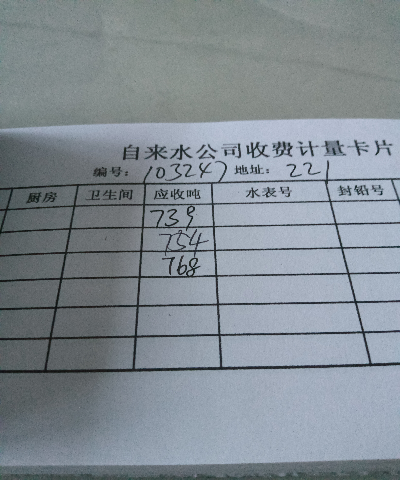 自来水公司收费计量卡片
编号：103247 地址：221
厨房 卫生间 应收吨 水表号 封铅号
739
754
768